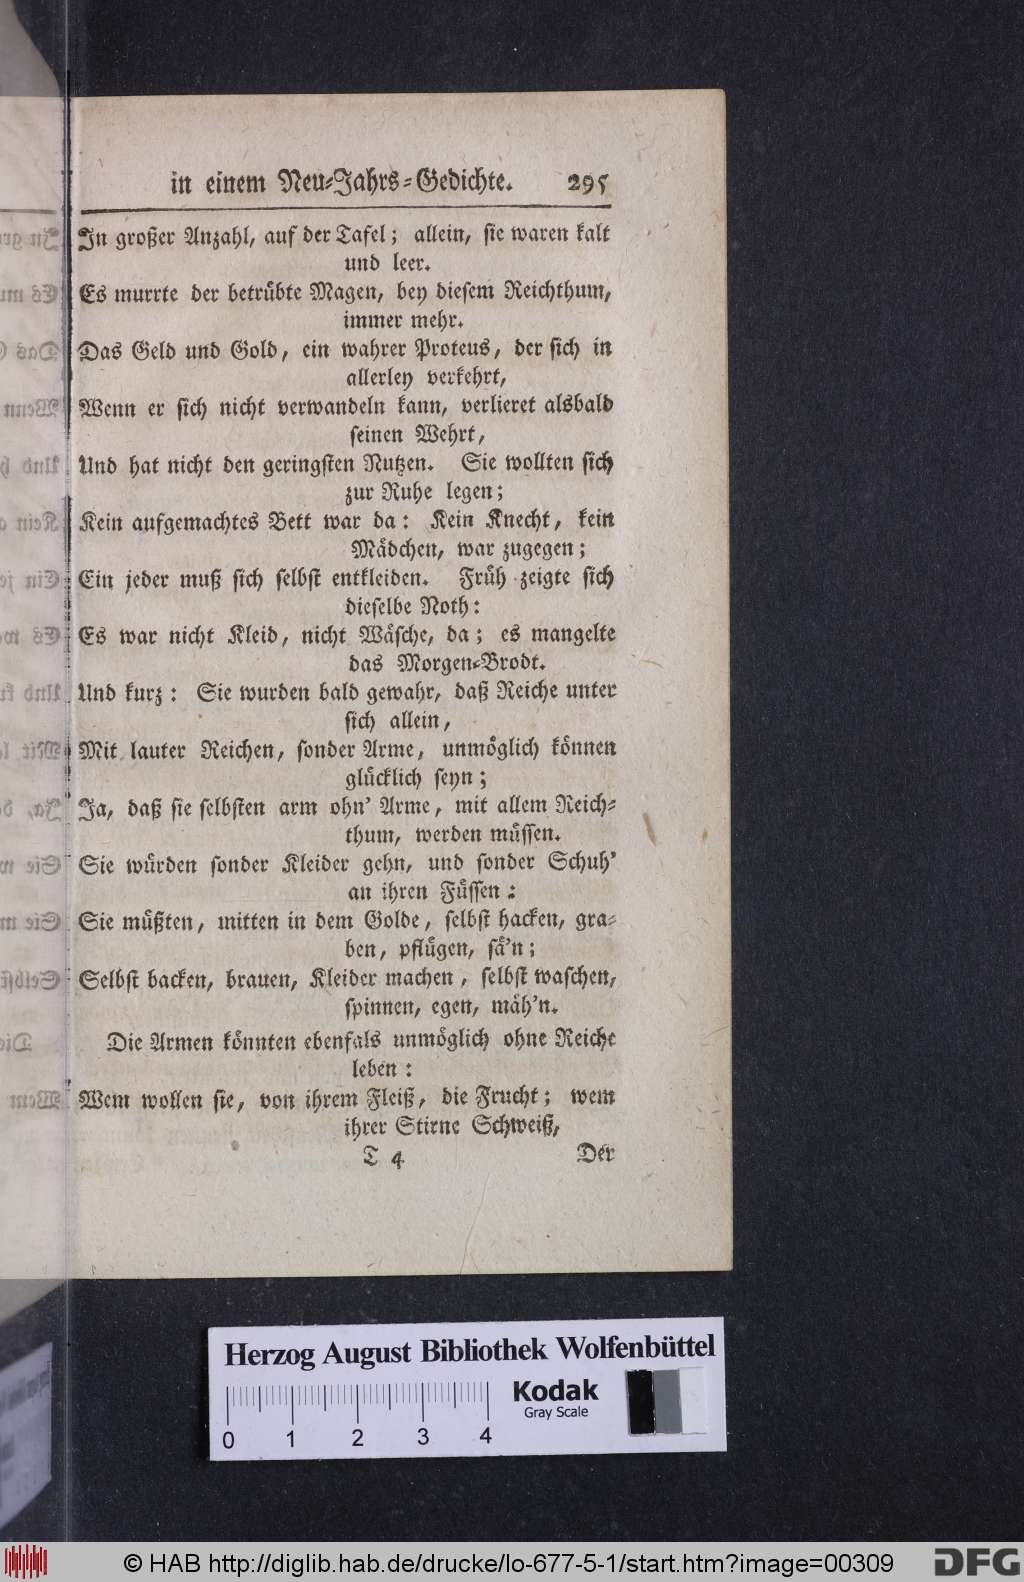 in einem Neu-Jahrs-Gedichte. 295
In großer Anzahl, auf der Tafel; allein, sie waren kalt
und leer.
Es murrte der betrübte Magen, bey diesem Reichthum,
immer mehr.
Das Geld und Gold, ein wahrer Proteus, der sich in
allerley verkehrt,
Wenn er sich nicht verwandeln kann, verlieret alsbald
seinen Wehrt,
Und hat nicht den geringsten Nutzen. Sie wollten sich
zur Ruhe legen;
Kein aufgemachtes Bett war da: Kein Knecht, kein
Mädchen, war zugegen;
Ein jeder muß sich selbst entkleiden. Früh zeigte sich
dieselbe Noth:
Es war nicht Kleid, nicht Wäsche, da; es mangelte
das Morgen-Brodt.
Und kurz: Sie wurden bald gewahr, daß Reiche unter
sich allein,
Mit lauter Reichen, sonder Arme, unmöglich können
glücklich seyn;
Ja, daß sie selbsten arm ohn' Arme, mit allem Reich-
thum, werden müssen.
Sie würden sonder Kleider gehn, und sonder Schuh'
an ihren Füssen:
Sie müßten, mitten in dem Golde, selbst hacken, gra-
ben, pflügen, sä'n;
Selbst backen, brauen, Kleider machen, selbst waschen,
spinnen, egen, mäh'n.
Die Armen könnten ebenfals unmöglich ohne Reiche
leben:
Wem wollen sie, von ihrem Fleiß, die Frucht; wem
ihrer Stirne Schweiß,
T 4 Der
Herzog August Bibliothek Wolfenbüttel
Kodak
Gray Scale
0 1 2 3 4
© HAB http://diglib.hab.de/drucke/lo-677-5-1/start.htm?image=00309
DFG